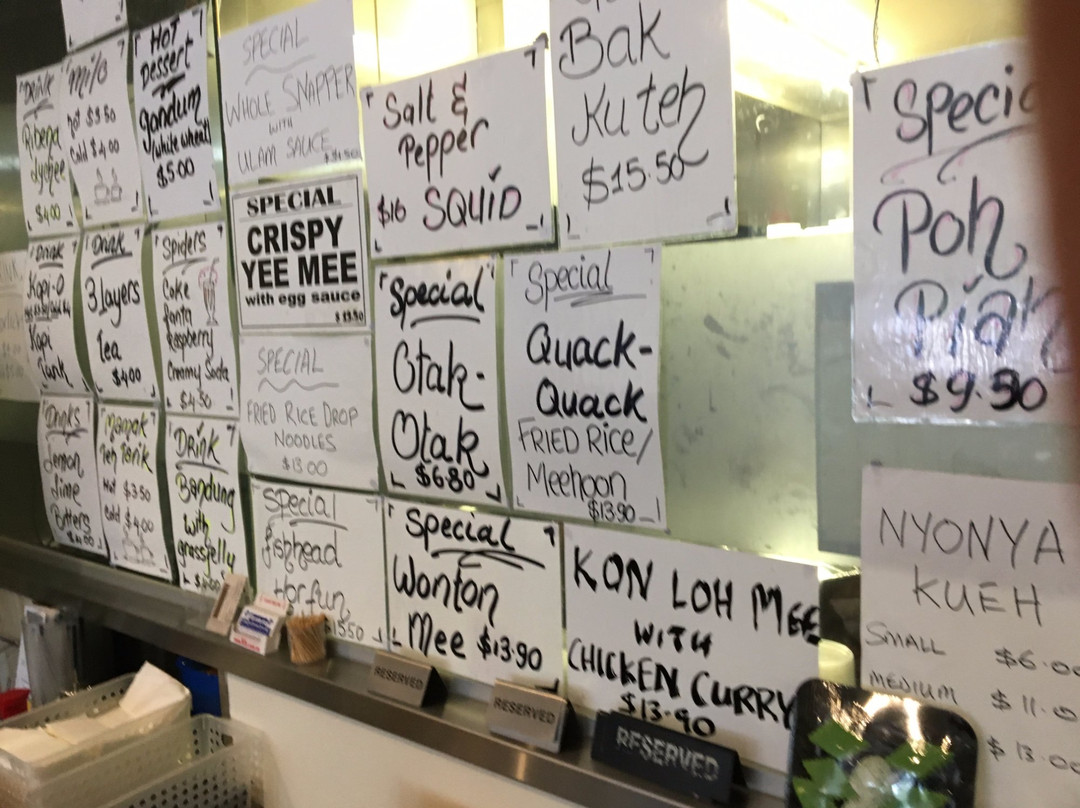 Drink
Ribena
Lychee
$4.00
Milo
hot $3.50
Cold $4.00
Hot
Dessert
gandum
(white wheat)
$5.00
SPECIAL
WHOLE SNAPPER
WITH
ULAM SAUCE
Salt &
Pepper
$16 SQUID
Bak
Kuteh
$15.50
Special
Poh
Piah
$9.50
Drink
Kopi-O
Kopi
Tarik
Drink
3 Layers
Tea
$4.00
Spiders
Coke
fanta
Raspberry
Creamy Soda
$4.50
SPECIAL
CRISPY
YEE MEE
with egg sauce
$13.50
SPECIAL
FRIED RICE DROP
NOODLES
$13.00
Special
Otak-
Otak
$6.80
Special
Quack-
Quack
FRIED RICE/
Meehoon
$13.90
Drinks
Lemon
Lime
Bitters
$4.00
Mamak
Teh Tarik
Hot $3.50
Cold $4.00
Drink
Bandung
with
grassjelly
Special
fishhead
Horfun
Special
Wonton
Mee $13.90
KON LOH MEE
WITH
CHICKEN CURRY
$13.90
NYONYA
KUEH
SMALL $6.00
MEDIUM $11.0
$13.00
RESERVED
RESERVED
RESERVED